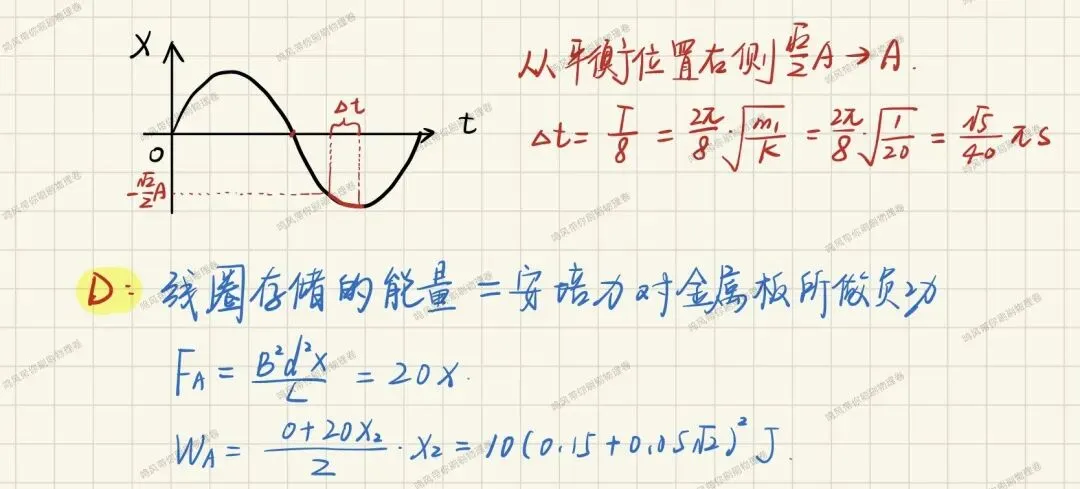 X
t
0
Δt
-√2/2 A
从平衡位置右侧 √2/2 A → A.
Δt = T/8 = 2π/8 · √(m₁/K) = 2π/8 · √(1/20) = √5/40 π s
D: 线圈存储的能量 = 安培力对金属板所做负功
F_A = B²d²x/L = 20x.
W_A = (0+20x₂)/2 · x₂ = 10(0.15+0.05√2)² J.
鸣风带你刷刷物理卷